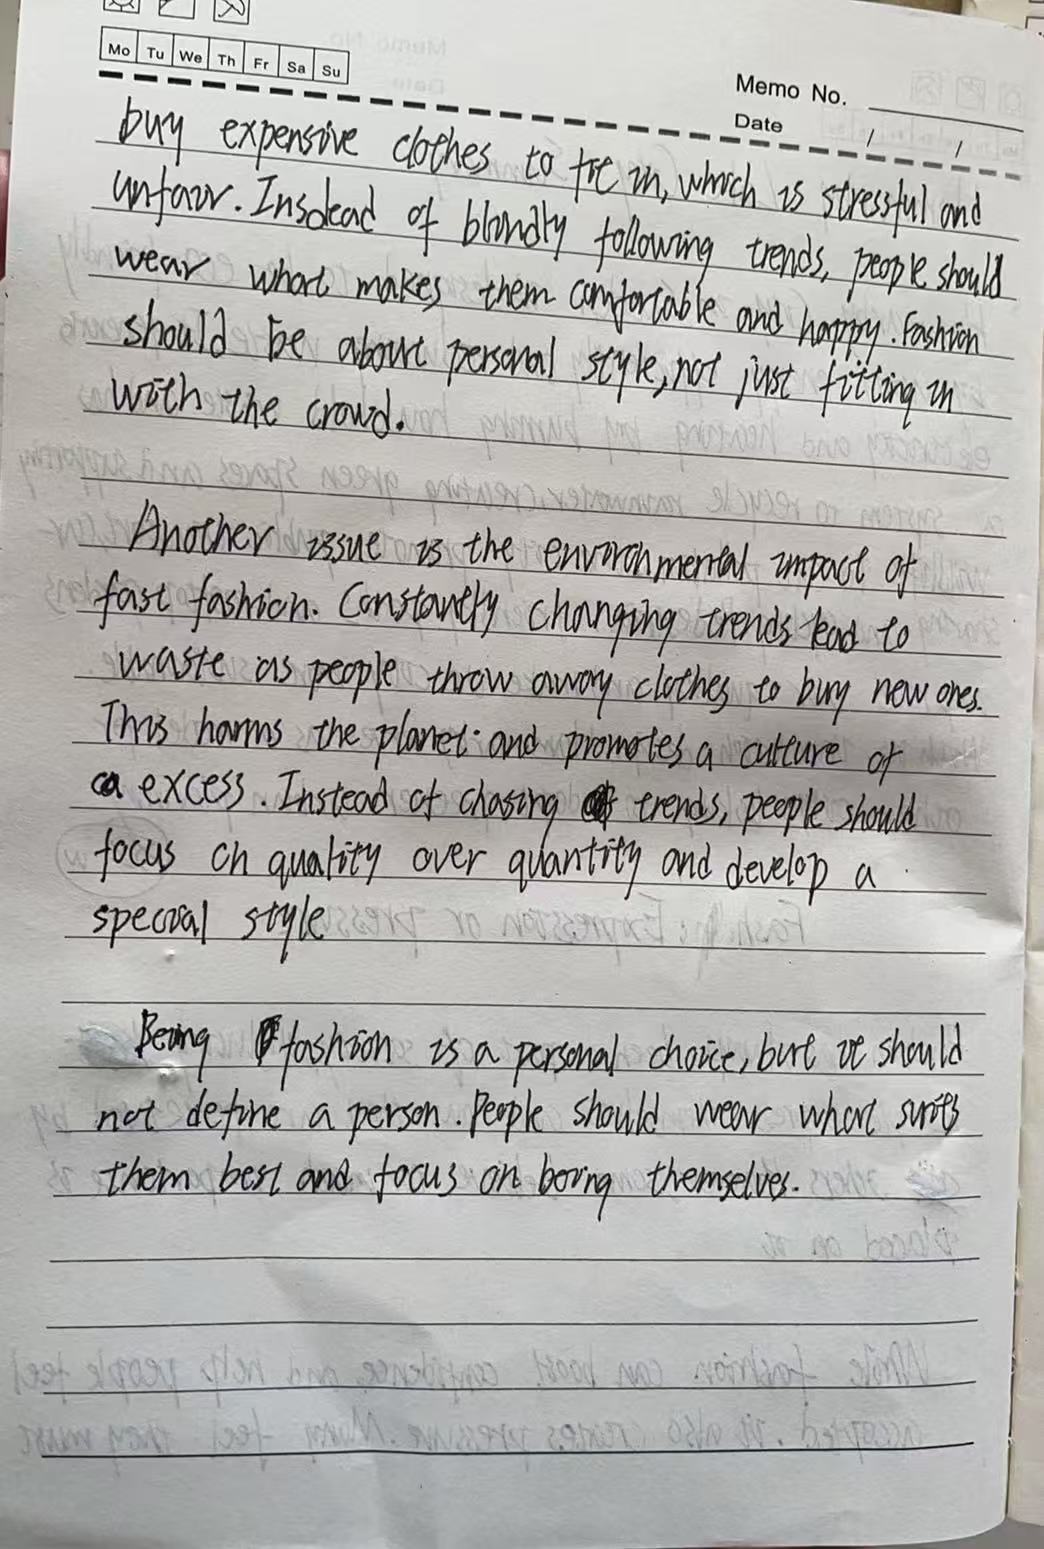 Mo Tu We Th Fr Sa Su
Memo No.
Date / /
buy expensive clothes to fit in, which is stressful and
unfair. Insdead of blindly following trends, people should
wear what makes them comfortable and happy. Fashion
should be about personal style, not just fitting in
with the crowd.
Another issue is the environmental impact of
fast fashion. Constantly changing trends lead to
waste as people throw away clothes to buy new ones.
This harms the planet and promotes a culture of
excess. Instead of chasing trends, people should
focus on quality over quantity and develop a
special style
Being fashion is a personal choice, but it should
not define a person. People should wear what suits
them best and focus on being themselves.